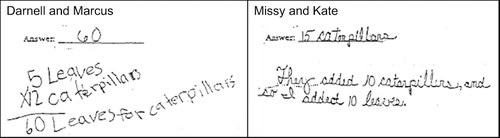 Darnell and Marcus
Answer: 60
5 Leaves
X12 caterpillars
60 Leaves for caterpillars
Missy and Kate
Answer: 15 caterpillars
They added 10 caterpillers, and
so I added 10 leaves.